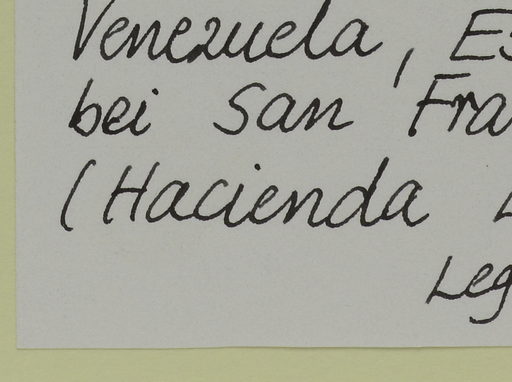 Venezuela, Es
bei San Fra
(Hacienda L
Leg